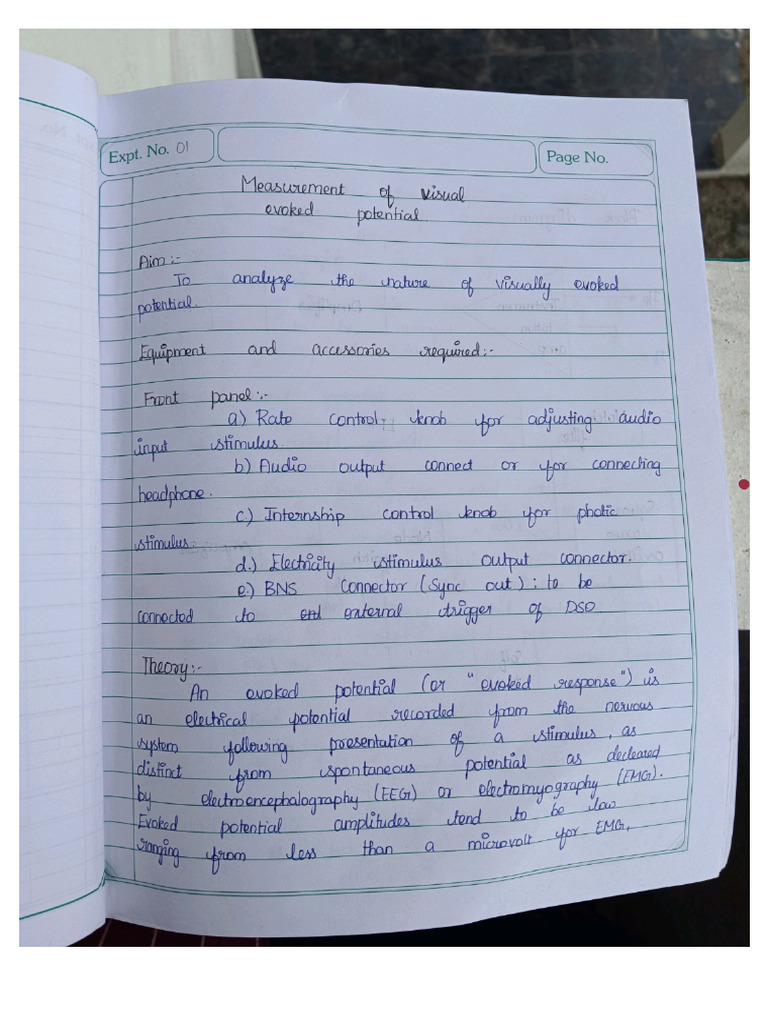 Expt. No. 01
Page No.
Measurement of visual
evoked potential
Aim:-
To analyze the nature of visually evoked
potential.
Equipment and accessories required:-
Front panel:-
a) Rate control, knob for adjusting audio
input stimulus.
b) Audio output connect or for connecting
headphone.
c) Internship control knob for photic
stimulus
d.) Electricity stimulus output connector.
e.) BNS connector (sync out) : to be
connected to external drigger of DSO
Theory:-
An evoked potential (or "evoked response") is
an electrical potential recorded from the nervous
system following presentation of a stimulus, as
distinct from spontaneous potential as decleared
by electroencephalography (EEG) or electromyography (EMG).
Evoked potential amplitudes tend to be law
ranging from less than a microvolt for EMG,